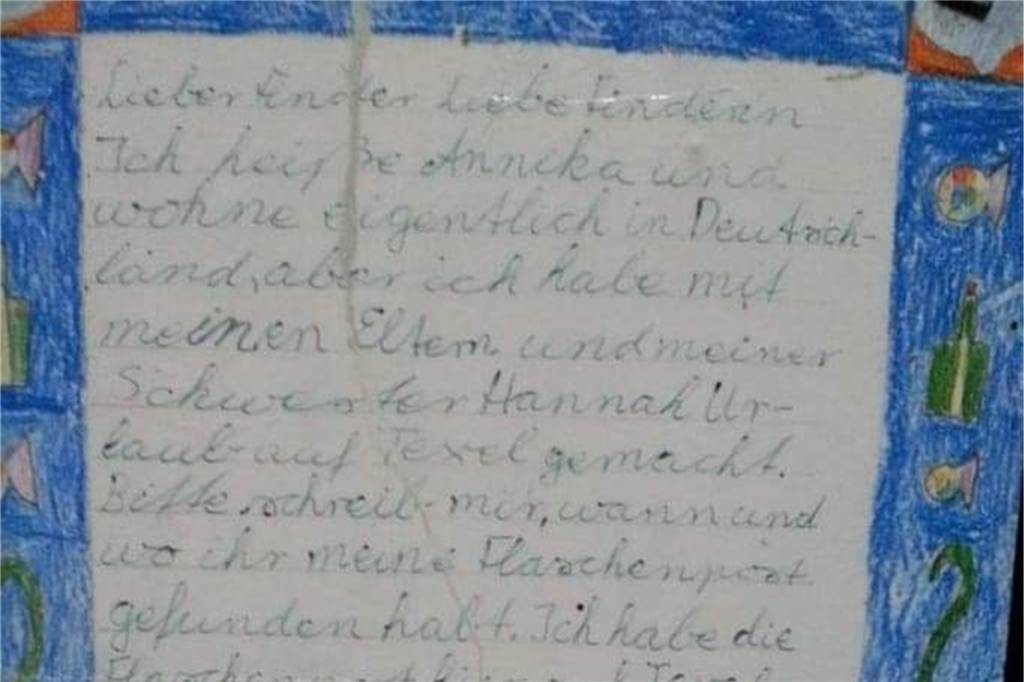 Lieber Finder liebe Finderin
Ich heiße Annika und
wohne eigentlich in Deutsch-
land, aber ich habe mit
meinen Eltern und meiner
Schwester Hannah Ur-
laub auf Texel gemacht.
Bitte schreib mir, wann und
wo ihr meine Flaschenpost
gefunden habt. Ich habe die
Flaschenpost